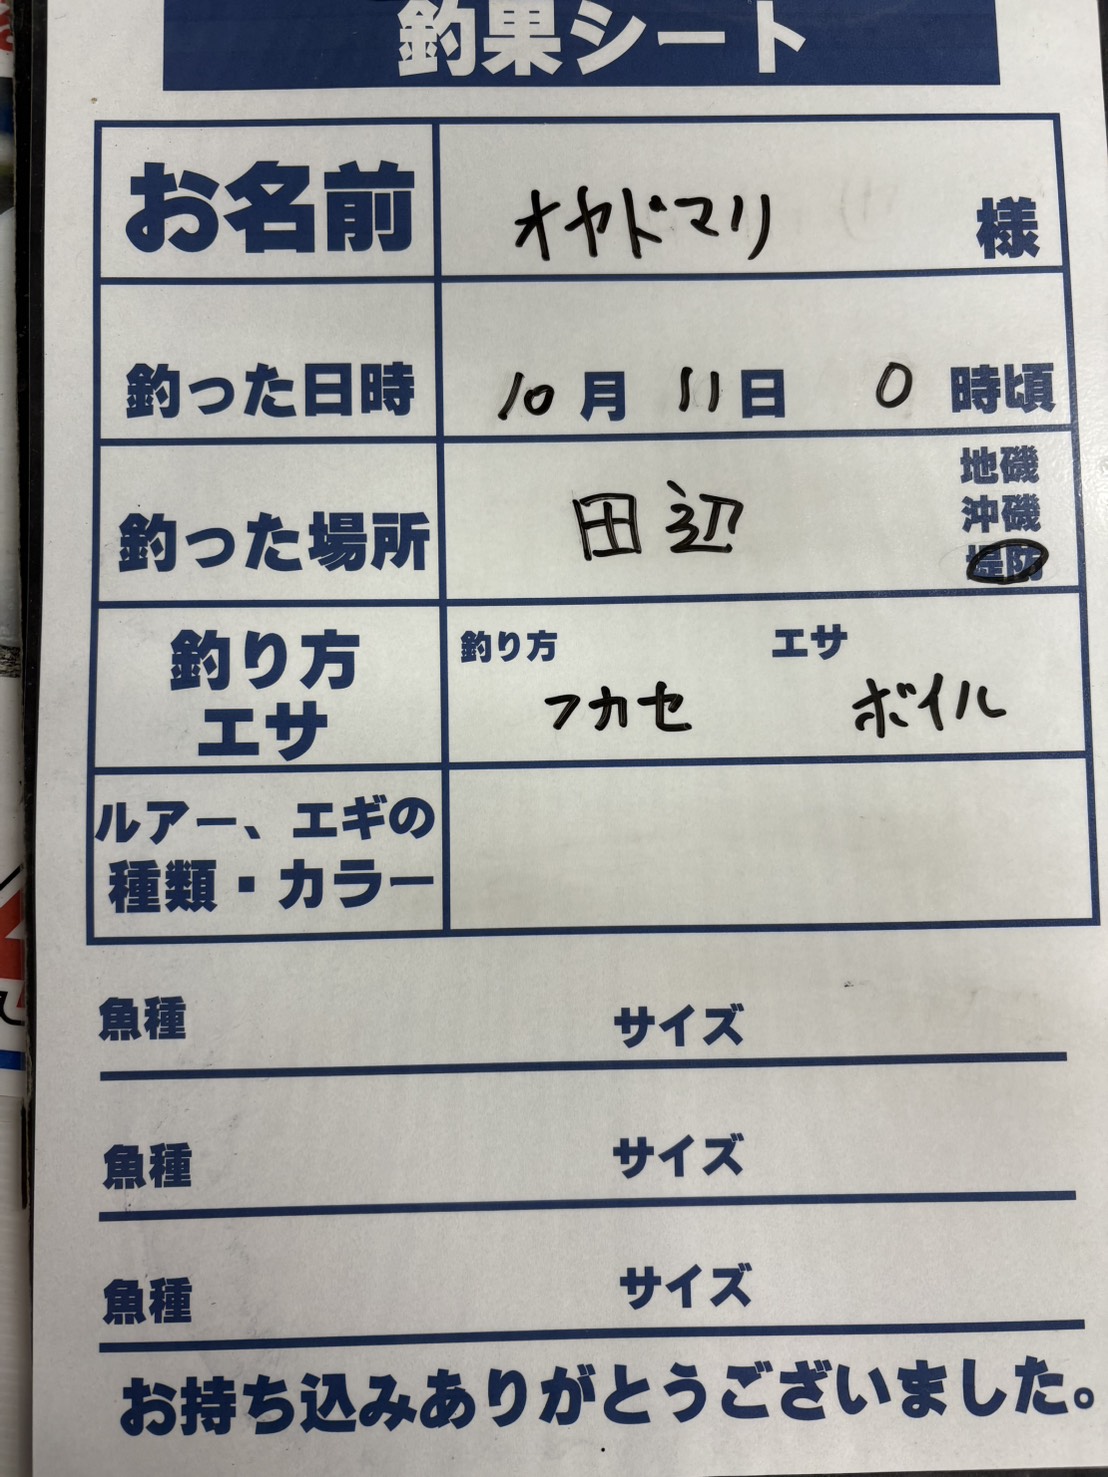 釣果シート
お名前 オヤドマリ 様
釣った日時 10月 11日 0時頃
釣った場所 田辺 地磯
沖磯
堤防
釣り方 エサ
釣り方 フカセ
エサ ボイル
ルアー、エギの
種類・カラー
魚種 サイズ
魚種 サイズ
魚種 サイズ
お持ち込みありがとうございました。